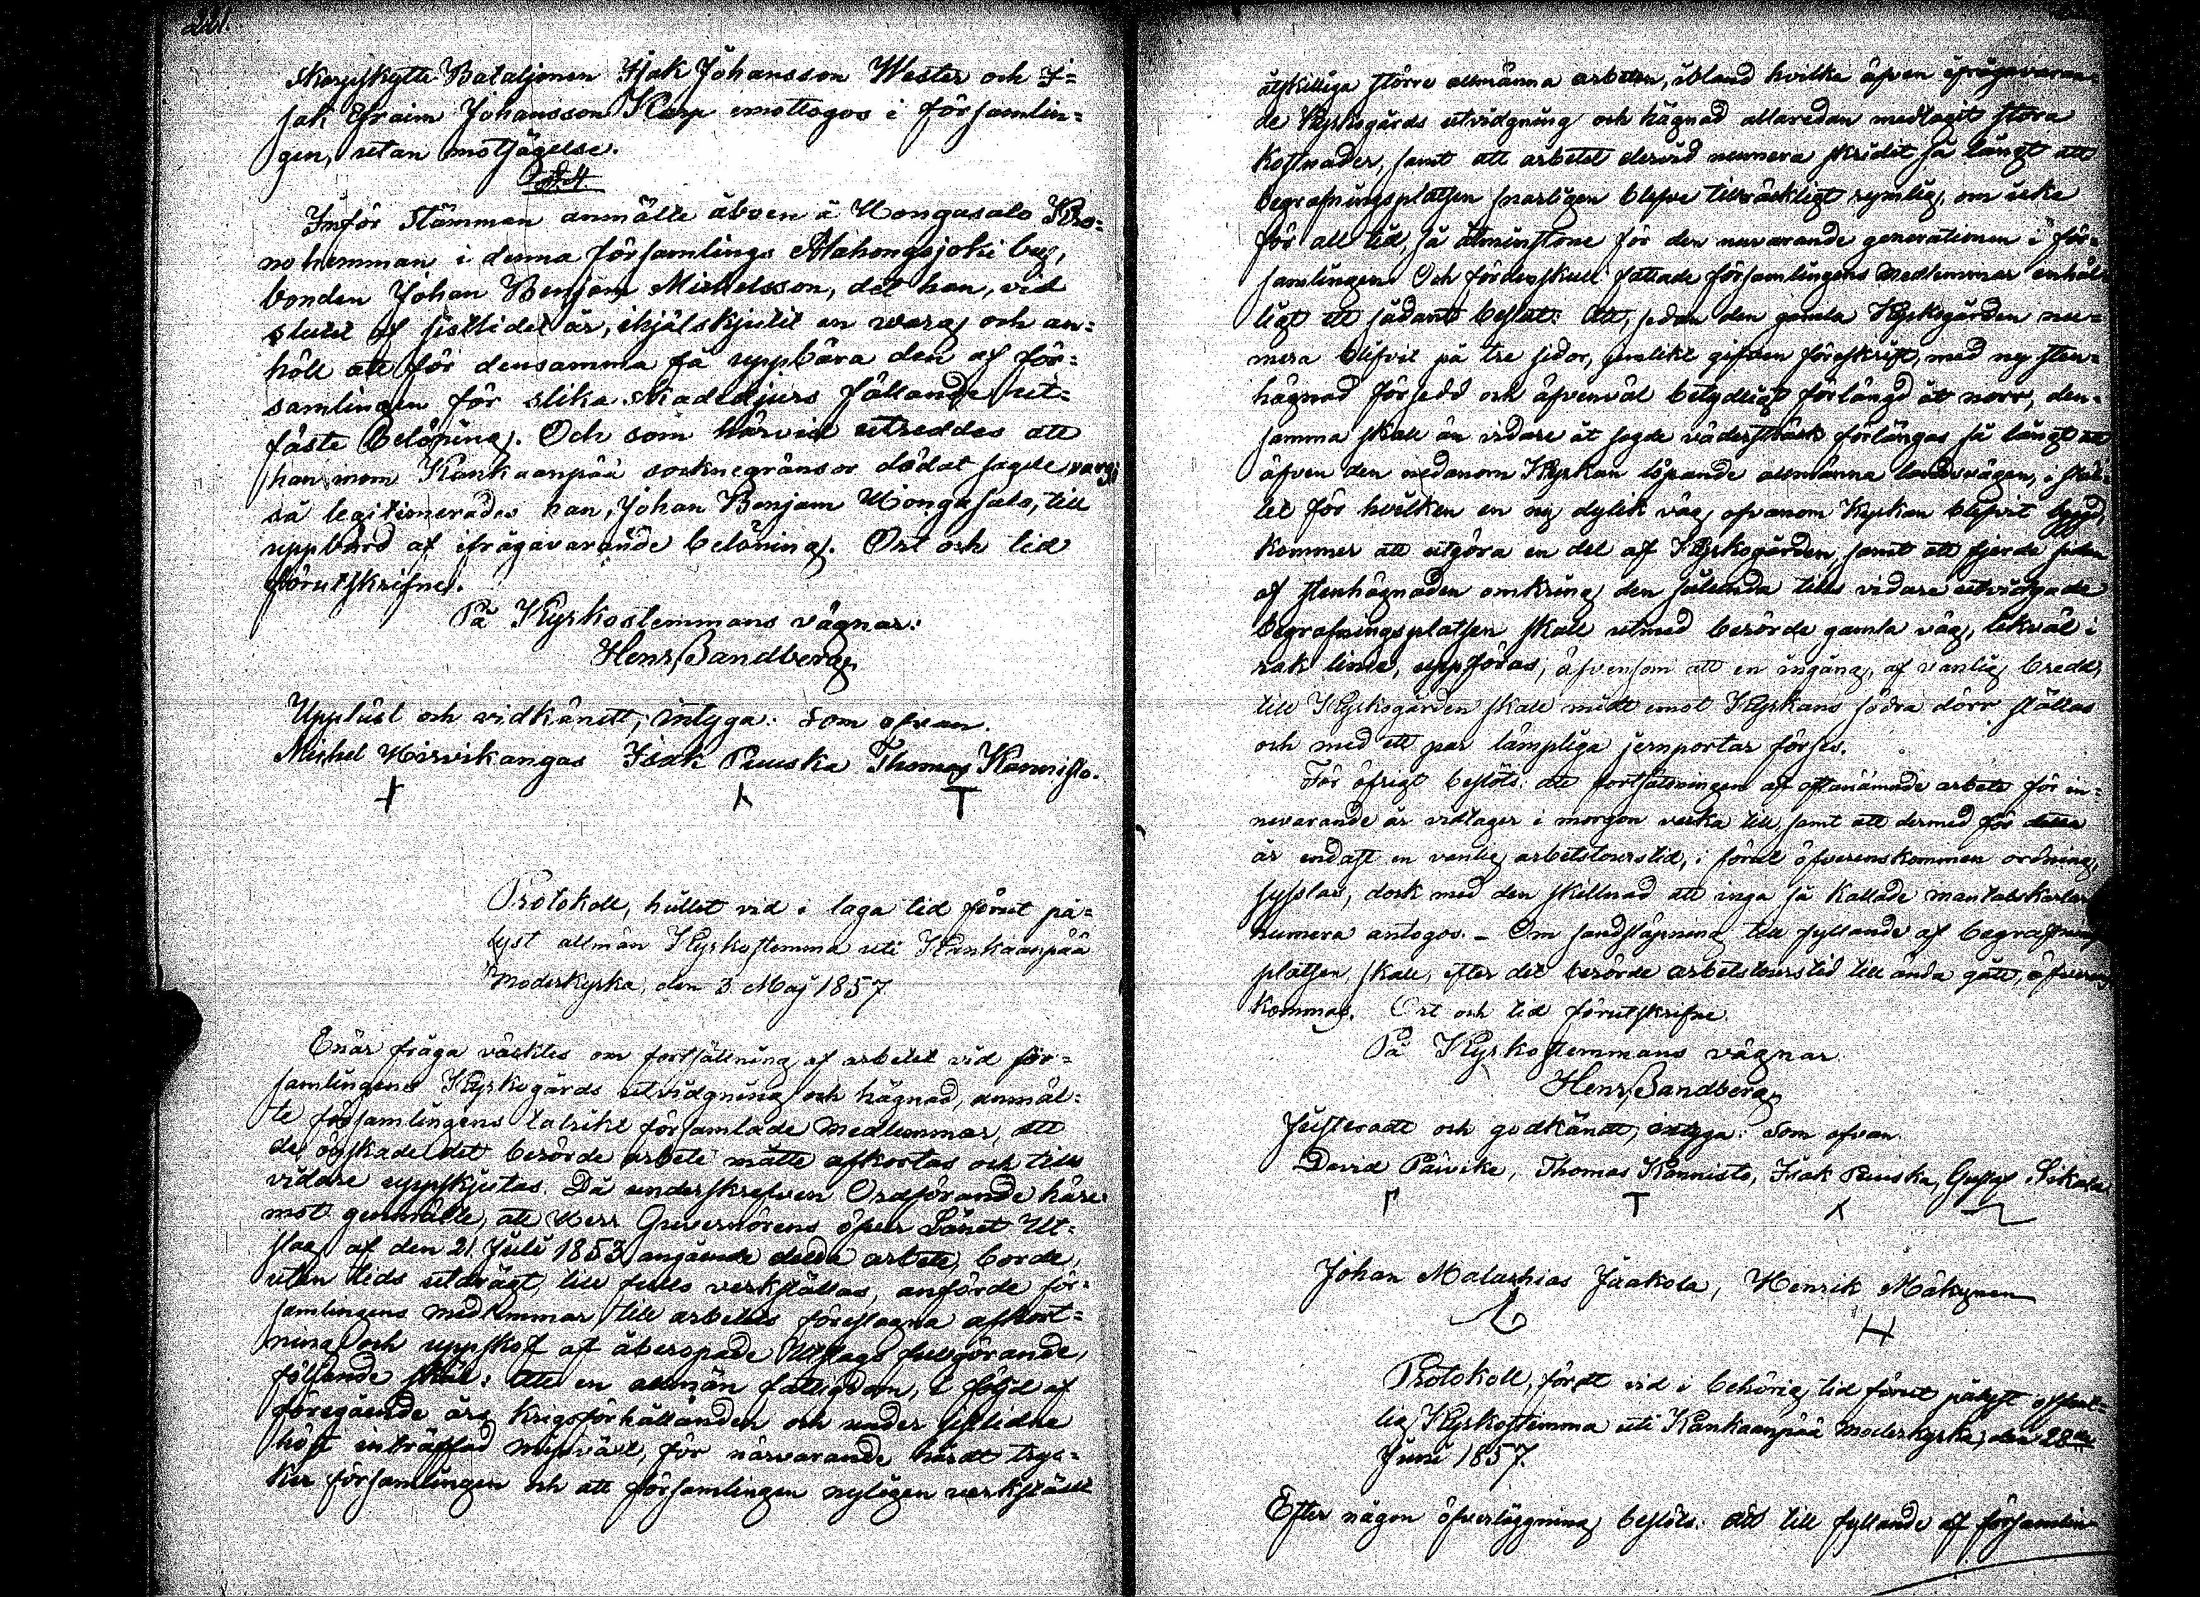 261.
Skarpskytte Bataljonen Isak Johansson Wester och I=
sak Efraim Johansson Karp emottogos i församlin=
gen, utan motsägelse.
§ 4
Inför Stämman anmälte äbven å Hongasalo Kro=
no hemman i denna församlings Alahongojoki by,
bonden Johan Benjam Michelsson, det han, vid
slutet af sistlidet år, ihjälskjutit en warg och an=
höll att för densamma få uppbära den af för=
samlingen för slika skadedjurs fällande ut=
fäste belöning. Och som härvid utreddes att
han inom Kankaanpää socknegränsor dödat sagde varg,
så legitimerades han, Johan Benjam Hongasalo, till
uppbörd af ifrågavarande belöning. Ort och tid
förutskrifne.
På Kyrkostemmans vägnar:
Henr. Sandberg
Uppläst och vidkändt, intyga: Som ofvan.
Michel Hirvikangas Isak Puuska Thomas Kannisto.
Protokoll, hållet vid i laga tid förut på=
lyst allmän Kyrkostemma uti Kankaanpää
Moderkyrka, den 3 Maj 1857.
Enär fråga väcktes om fortsättning af arbetet vid för=
samlingens Kyrkogårds utvidgning och hägnad, anmäl=
te församlingens talrikt församlade medlemmar, att
de önskade det berörde arbete måtte afkortas och tills
vidare uppskjutas. Då underskrefven Ordförande häre=
mot genmälte, att Herr Guvernörens öfver Länet Ut=
slag af den 21 Juli 1853 angående detta arbete, borde,
utan tids utdrägt, till fullo verkställas, anförde för=
samlingens medlemmar till arbetets föreslagna afkort=
ning och uppskof af åberopade Utslags fullgörande,
följande skäl: Att en allmän fattigdom, i följd af
föregående års krigsförhållanden och under sistlidne
höst inträffad missväxt, för närvarande hårdt tryc=
ker församlingen och att församlingen nyligen verkstält
åtskilliga större allmänna arbeten, ibland hvilka äfven ifrågavaran=
de Kyrkogårds utvidgning och hägnad allaredan medtagit stora
kostnader, samt att arbetet dervid numera skridit så långt att
begrafningsplatsen snarligen blefve tillräckligt rymlig, om icke
för all tid, så åtminstone för den nuvarande generationen i för=
samlingen. Och fördenskull fattade församlingens medlemmar enhäl=
ligt ett sådant beslut: Att, sedan den gamla Kyrkogården nu=
mera blifvit på tre sidor, jemlikt gifven föreskrift, med ny sten=
hägnad försedd och äfvenväl betydligt förlängd åt norr, den=
samma skall än vidare åt sagde väderstreck förlängas så långt att
äfven den nedanom Kyrkan löpande allmänna landsvägen, i stäl=
let för hvilken en ny dylik väg ofvanom Kyrkan blifvit byggd,
kommer att utgöra en del af Kyrkogården, samt att fjerde sidan
af stenhägnaden omkring den sålunda tills vidare utvidgade
begrafningsplatsen skall utmed berörde gamla väg, likväl i
rak linie, uppföras, äfvensom att en ingång, af vanlig bredd,
till Kyrkogården skall midt emot Kyrkans södra dörr ställas
och med ett par lämpliga jernportar förses.
För öfrigt beslöts: att fortsättningen af oftanämnde arbete för in=
nevarande år vidtager i morgon vecka till, samt att dermed för detta
år endast en vanlig arbetstourstid, i förut öfverenskommen ordning,
sysslas, dock med den skillnad att inga så kallade mantalskarlar
numera antogos. – Om sandsläpning till fyllande af begrafnings
platsen, skall, efter det berörde arbetstourstid till ända gått, öfverens
kommas. Ort och tid förutskrifne.
På Kyrkostemmans vägnar.
Henr. Sandberg
Justeradt och godkändt, intyga: Som ofvan.
David Päivike, Thomas Kannisto, Isak Puuska, Gustaf Sikala
Johan Malachias Jaakola, Henrik Mäkynen
Protokoll, fördt vid i behörig tid förut pålyst offent=
lig Kyrkostemma uti Kankaanpää Moderkyrka, den 28de
Juni 1857.
Efter någon öfverläggning beslöts: att till fyllande af församlin